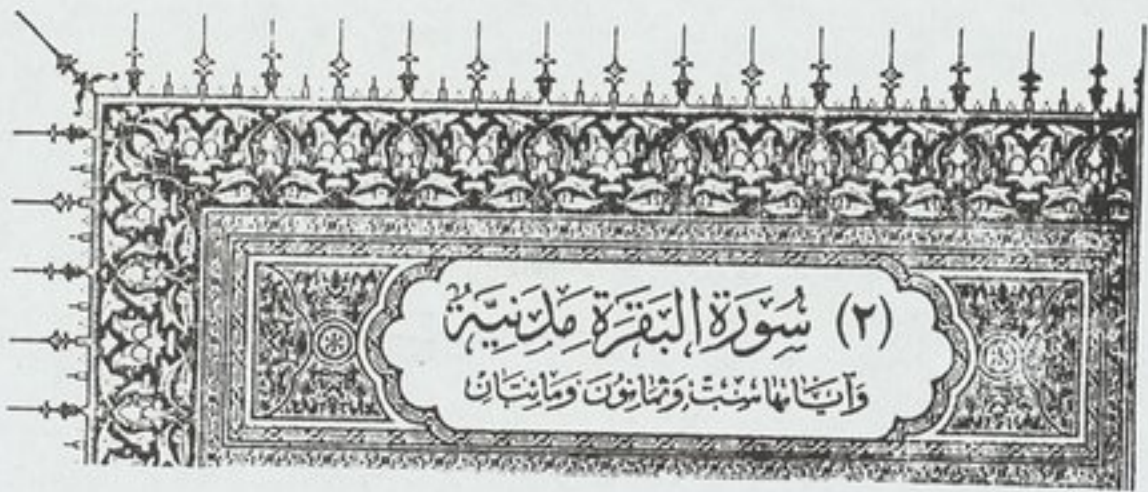 (٢) سُورَةُ البَقَرَةِ مَدَنِيَّةٌ
وَآيَاتُهَا سِتٌّ وَثَمَانُونَ وَمَائَتَانِ